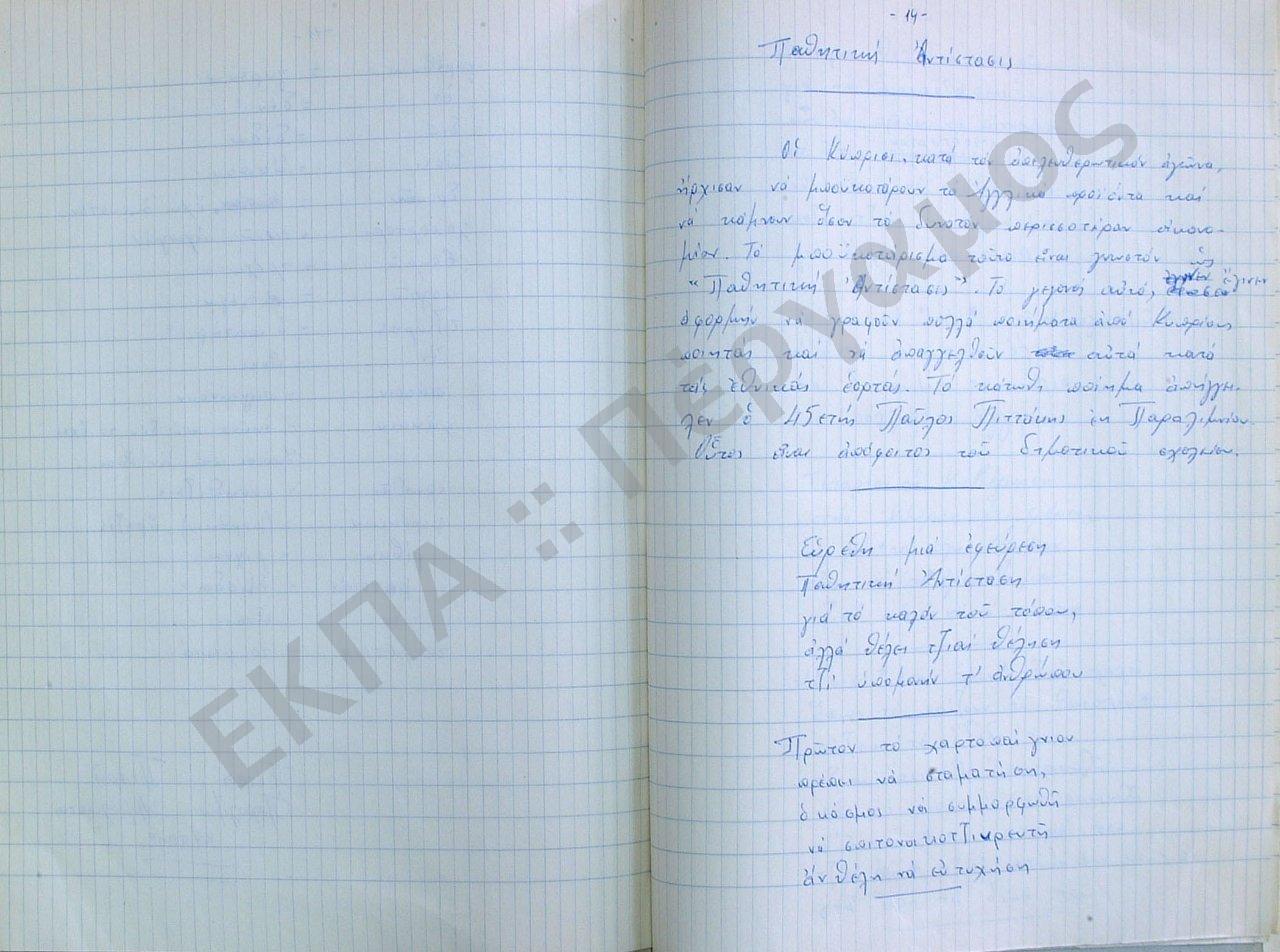 - 14 -
Παθητική Ἀντίστασις
Οἱ Κύπριοι κατά τον ἀπελευθερωτικόν ἀγῶνα,
ἤρχισαν νά μποϋκοτάρουν τα Ἀγγλικά προϊόντα καί
νά κάμνουν ὅσον τό δυνατόν περισσοτέραν οἰκονο-
μίαν. Τό μποϋκοτάρισμα τοῦτο εἶναι γνωστόν ὡς
"Παθητική Ἀντίστασις". Το γεγονός αὐτό, ἔγινεν
ἀφορμήν νά γραφοῦν πολλά ποιήματα ἀπό Κυπρίους
ποιητάς καί νά ἀπαγγελθοῦν αὐτά κατά
τάς ἐθνικάς ἑορτάς. Τό κάτωθι ποίημα ἀπήγγει-
λεν ὁ 45ετής Παῦλος Πιττάκης ἐκ Παραλιμνίου.
Οὗτος εἶναι ἀπόφοιτος τοῦ δημοτικοῦ σχολείου.
Εὑρέθη μιά ἐφεύρεση
Παθητική Ἀντίσταση
γιά τό καλόν τοῦ τόπου,
ἀλλά θέλει τζιαί θέληση
τζί ὑπομονήν τ' ἀνθρώπου
Πρῶτον τό χαρτοπαίγνιον
πρέπει νά σταματήση,
ὁ κόσμος νά συμμορφωθῆ
νά
ἄν θέλη νά εὐτυχήση
ΕΚΠΑ :: Πέργαμος